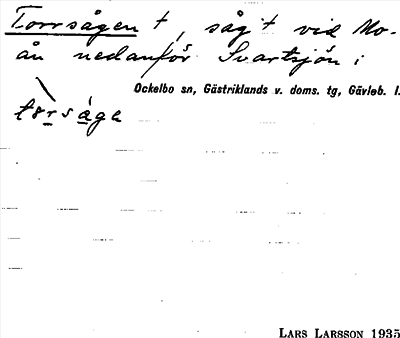 Torrsågen †, såg † vid Mo-
ån nedanför Svartsjön i
Ockelbo sn, Gästriklands v. doms. tg, Gävleb. l.
tørsåga
LARS LARSSON 1935